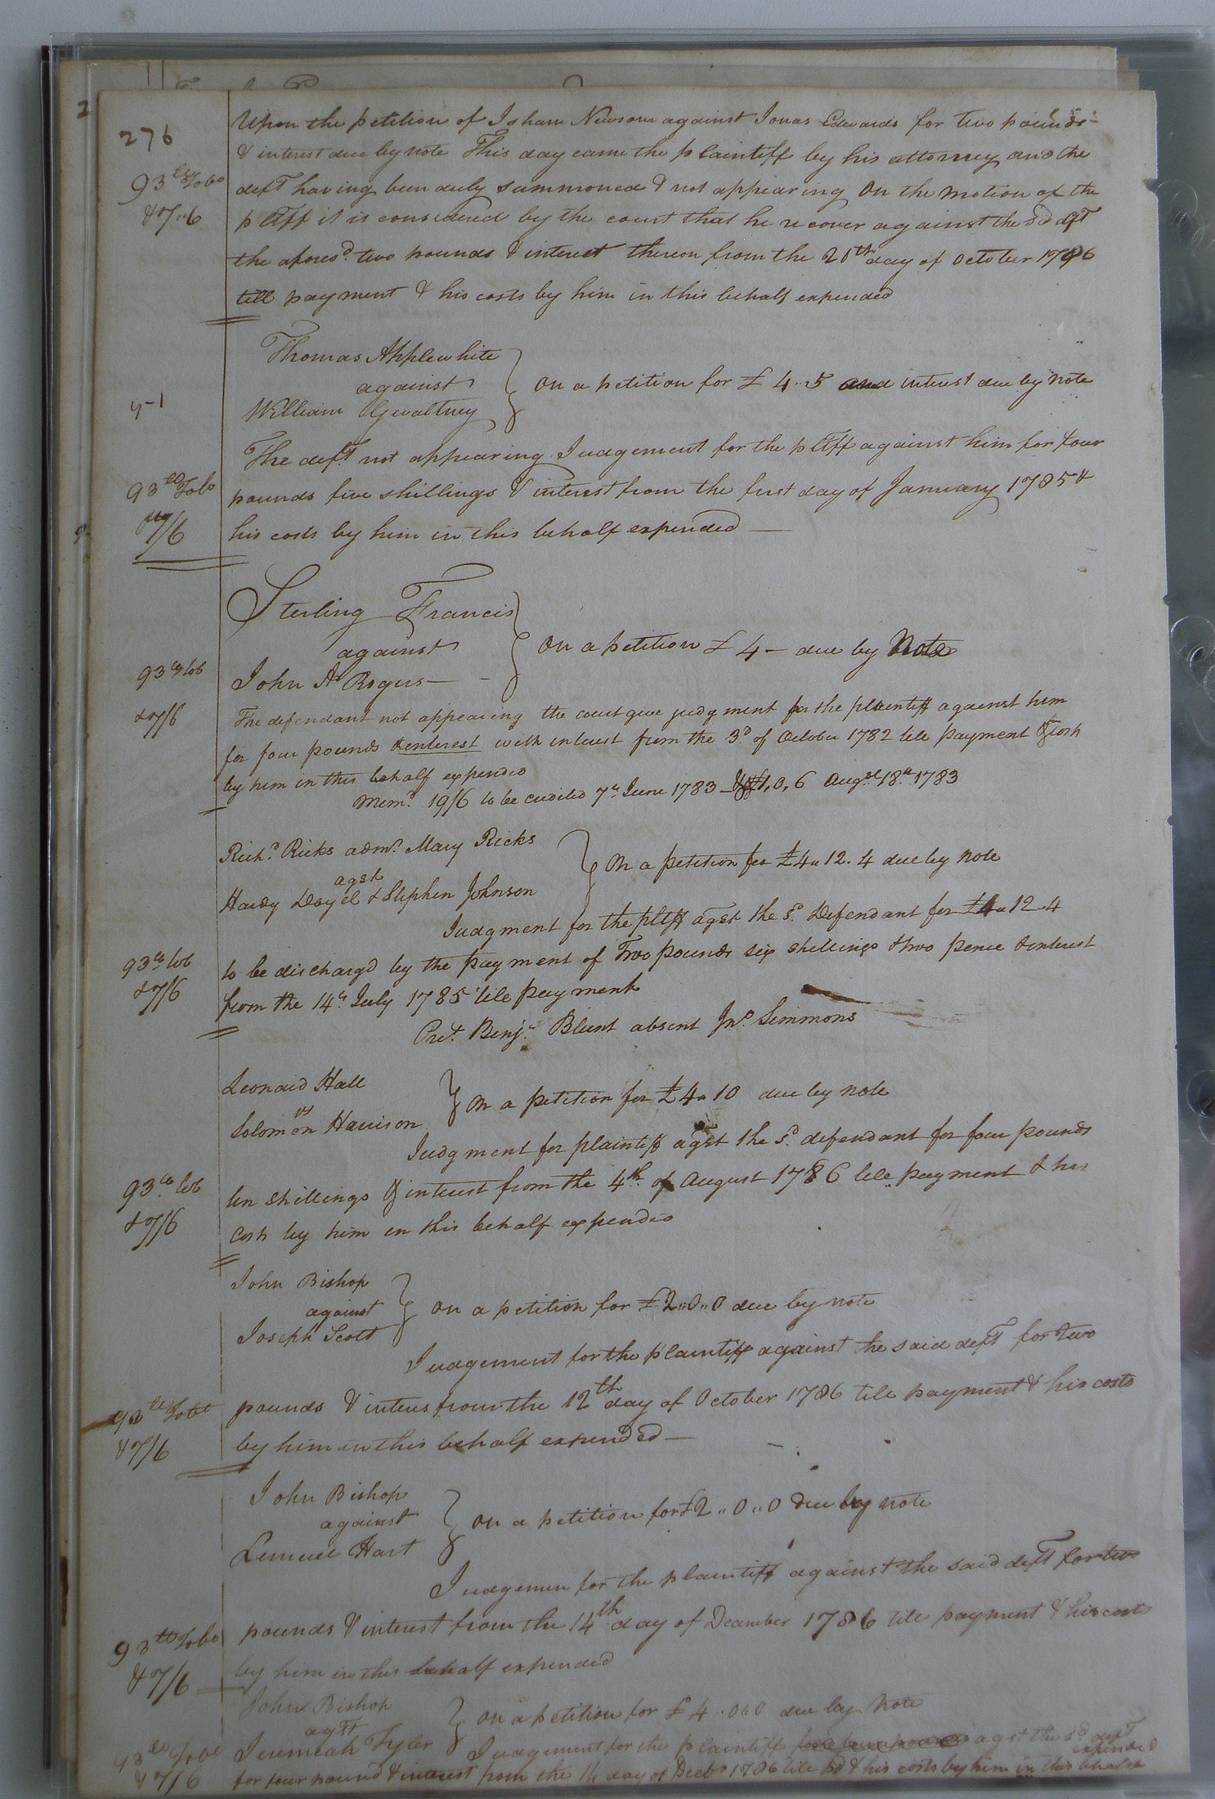 276
Upon the petition of Isham Newsom against Jonas Edwards for two pounds
& interest due by note This day came the plaintiff by his attorney and the
93 lb Tobo
deft having been duly summoned & not appearing On the motion of the
& 7..6
pltff it is considered by the court that he recover against the sd dft
the afores.d two pounds & interest thereon from the day of October 1786
till payment & his costs by him in this behalf expended
Thomas Applewhite
against
William Gwaltney
On a petition for £ 4..5 and interest due by note
4-1
The deft not appearing Judgement for the pltff against him for four
93 lb Tobo
pounds five shillings & interest from the first day of January 1785 &
7/6
his costs by him in this behalf expended —
Sterling Francis
against
John A Rogers —
On a petition £ 4 — due by Note
93 lb tob
& 7/6
The defendant not appearing the court give judgment for the plaintiff against him
for four pounds & interest with interest from the 3d of October 1782 tile payment & costs
by him in this behalf expended
Mem. 19/6 to be credited 7th June 1783 1,0,6 Augst 18th 1783
Richd Ricks admr Mary Ricks
agst
Hardy & Stephen Johnson
On a petition for £4 " 12. 4 due by note
Judgment for the pltff agst the sd Defendant for £4 " 12.4
93 lb tob
to be dischargd by the payment of Two pounds six shillings & two pence & interest
& 7/6
from the 14th July 1785 tile payment
Pret Benjn Blunt absent Jno Simmons
Leonard Hall
vs
Solomon Harrison
On a petition for £4 " 10 due by note
Judgment for plaintiff agst the sd defendant for four pounds
93 lb tob
ten shillings & interest from the 4th of August 1786 tile payment & his
& 7/6
costs by him in this behalf expended
John Bishop
against
Joseph Scott
On a petition for £2..0..0 due by note
Judgement for the plaintiff against the said deft for two
93 lb Tobo
pounds & interes from the 12th day of October 1786 tile payment & his costs
& 7/6
by him in this behalf expended —
John Bishop
against
Lemuel Hart
On a petition for £2..0..0 due by note
Judgemen for the plaintiff against the said deft for two
93 lb Tobo
pounds & interest from the 14th day of December 1786 tile payment & his costs
& 7/6
by him in this behalf expended
John Bishop
agst
Jeremiah Tyler
On a petition for £ 4 .0.0 due by Note
Judgement for the plaintiff agst the sd deft
93 lb Tobo
& 7/6
for four pound & interest from the day of Decbr 1786 tile & his costs by him in this behalf
expended